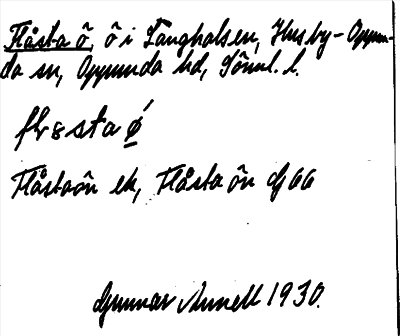 Flåsta ö, ö i Långhalsen, Husby-Oppun-
da sn, Oppunda hd, Söml. l.
flɤsta ǿ
Flåstaön ek, Flåsta ön df 66
Gunnar Annell 1930.